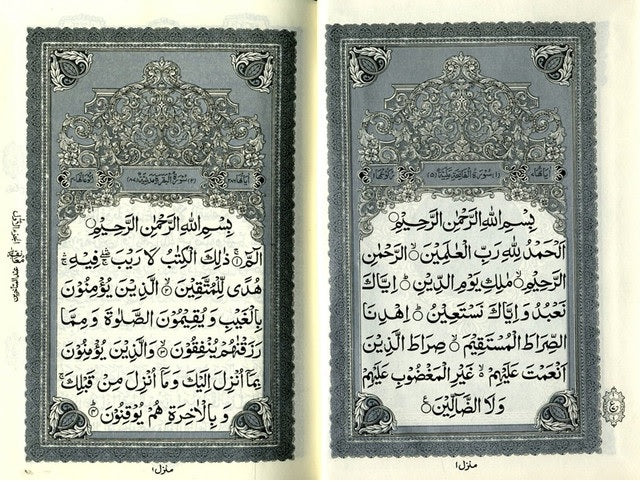 سُوْرَةُ الْفَاتِحَةِ
بِسْمِ اللّٰهِ الرَّحْمٰنِ الرَّحِيْمِ
اَلْحَمْدُ لِلّٰهِ رَبِّ الْعٰلَمِيْنَ ۙ الرَّحْمٰنِ
الرَّحِيْمِ ۙ مٰلِكِ يَوْمِ الدِّيْنِ ؕ اِيَّاكَ
نَعْبُدُ وَ اِيَّاكَ نَسْتَعِيْنُ ؕ اِهْدِنَا
الصِّرَاطَ الْمُسْتَقِيْمَ ۙ صِرَاطَ الَّذِيْنَ
اَنْعَمْتَ عَلَيْهِمْ ۙ غَيْرِ الْمَغْضُوْبِ عَلَيْهِمْ
وَلَا الضَّآلِّيْنَ
منزل۱
سُوْرَةُ الْبَقَرَةِ
بِسْمِ اللّٰهِ الرَّحْمٰنِ الرَّحِيْمِ
الٓمّٓ ۚ ذٰلِكَ الْكِتٰبُ لَا رَيْبَ ۛ فِيْهِ ۛ
هُدًى لِّلْمُتَّقِيْنَ ۙ الَّذِيْنَ يُؤْمِنُوْنَ
بِالْغَيْبِ وَ يُقِيْمُوْنَ الصَّلٰوةَ وَ مِمَّا
رَزَقْنٰهُمْ يُنْفِقُوْنَ ۙ وَالَّذِيْنَ يُؤْمِنُوْنَ
بِمَآ اُنْزِلَ اِلَيْكَ وَ مَآ اُنْزِلَ مِنْ قَبْلِكَ ۚ
وَ بِالْاٰخِرَةِ هُمْ يُوْقِنُوْنَ ؕ
منزل۱